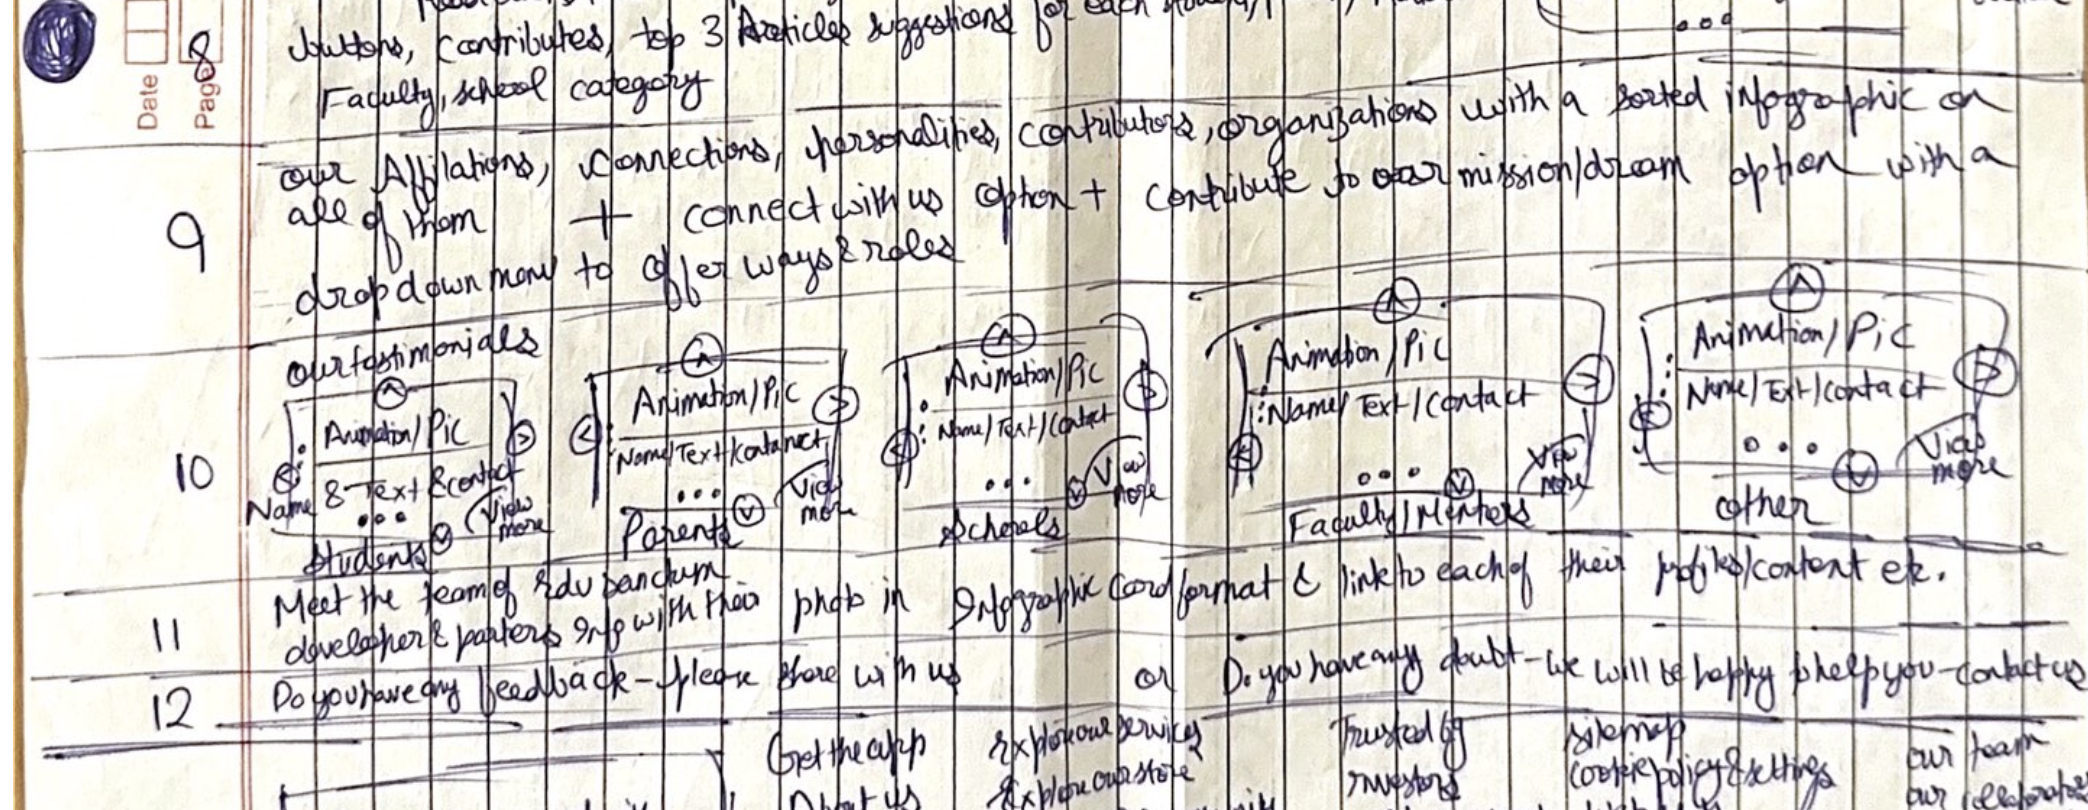 Date
Page 8
buttons, contributes, top 3 Articles suggestions for each
Faculty, school category
9
our Affilations, connections, personalities, contributors, organizations with a sorted infographic on
all of them + connect with us option + contribute to our mission/dream option with a
drop down menu to offer ways & roles
10
our testimonials
Animation/Pic
Name & Text & contact
View more
Students
Animation/Pic
Name/Text/
View more
Parents
Animation/Pic
Name/Text/Contact
View more
Schools
Animation/Pic
Name/Text/Contact
View more
Faculty/Mentors
Animation/Pic
Name/Text/contact
View more
other
11
Meet the team of
developer & parters Info with their photo in Infographic Card format & link to each of their profiles/content etc.
12
Do you have any feedback - please share with us or Do you have any doubt - we will be happy to help you - contact us
Get the app Explore our services Trusted by sitemap our team
About us Explore our store Investors cookie policy & settings our